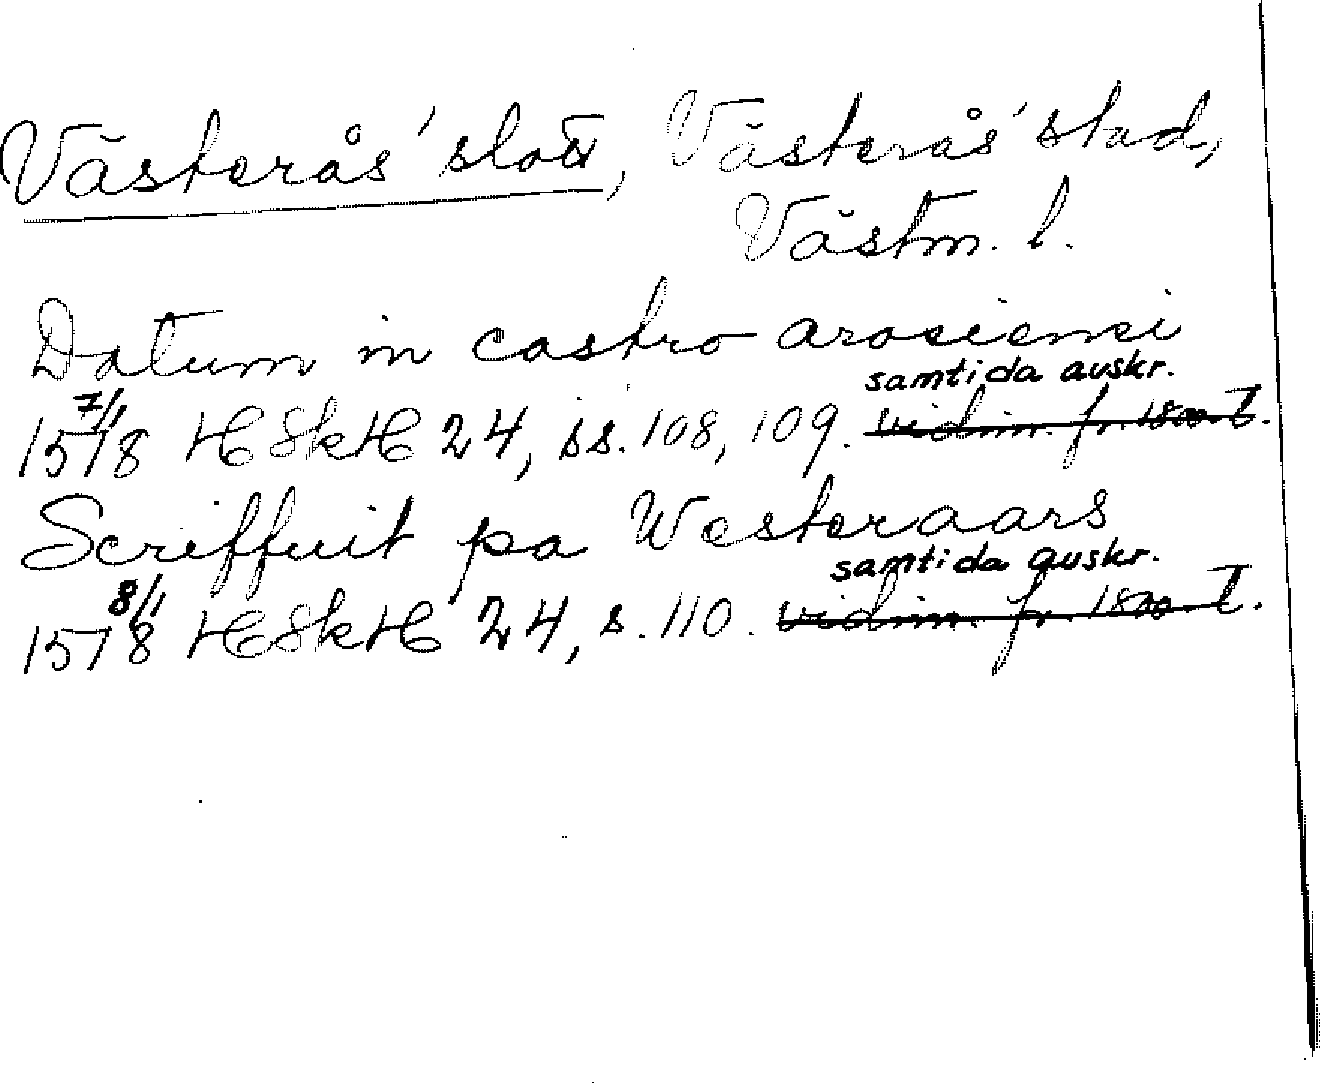 Västerås' slott, Västerås' stad,
Västm. l.
Datum in castro arosiensi
samtida avskr.
7/1
1518 HSkH 24, ss. 108, 109. vidim. fr. 1800-t.
Scriffuit pa Westeraars
samtida avskr.
8/1
1518 HSkH 24, s. 110. vidim. fr. 1800-t.